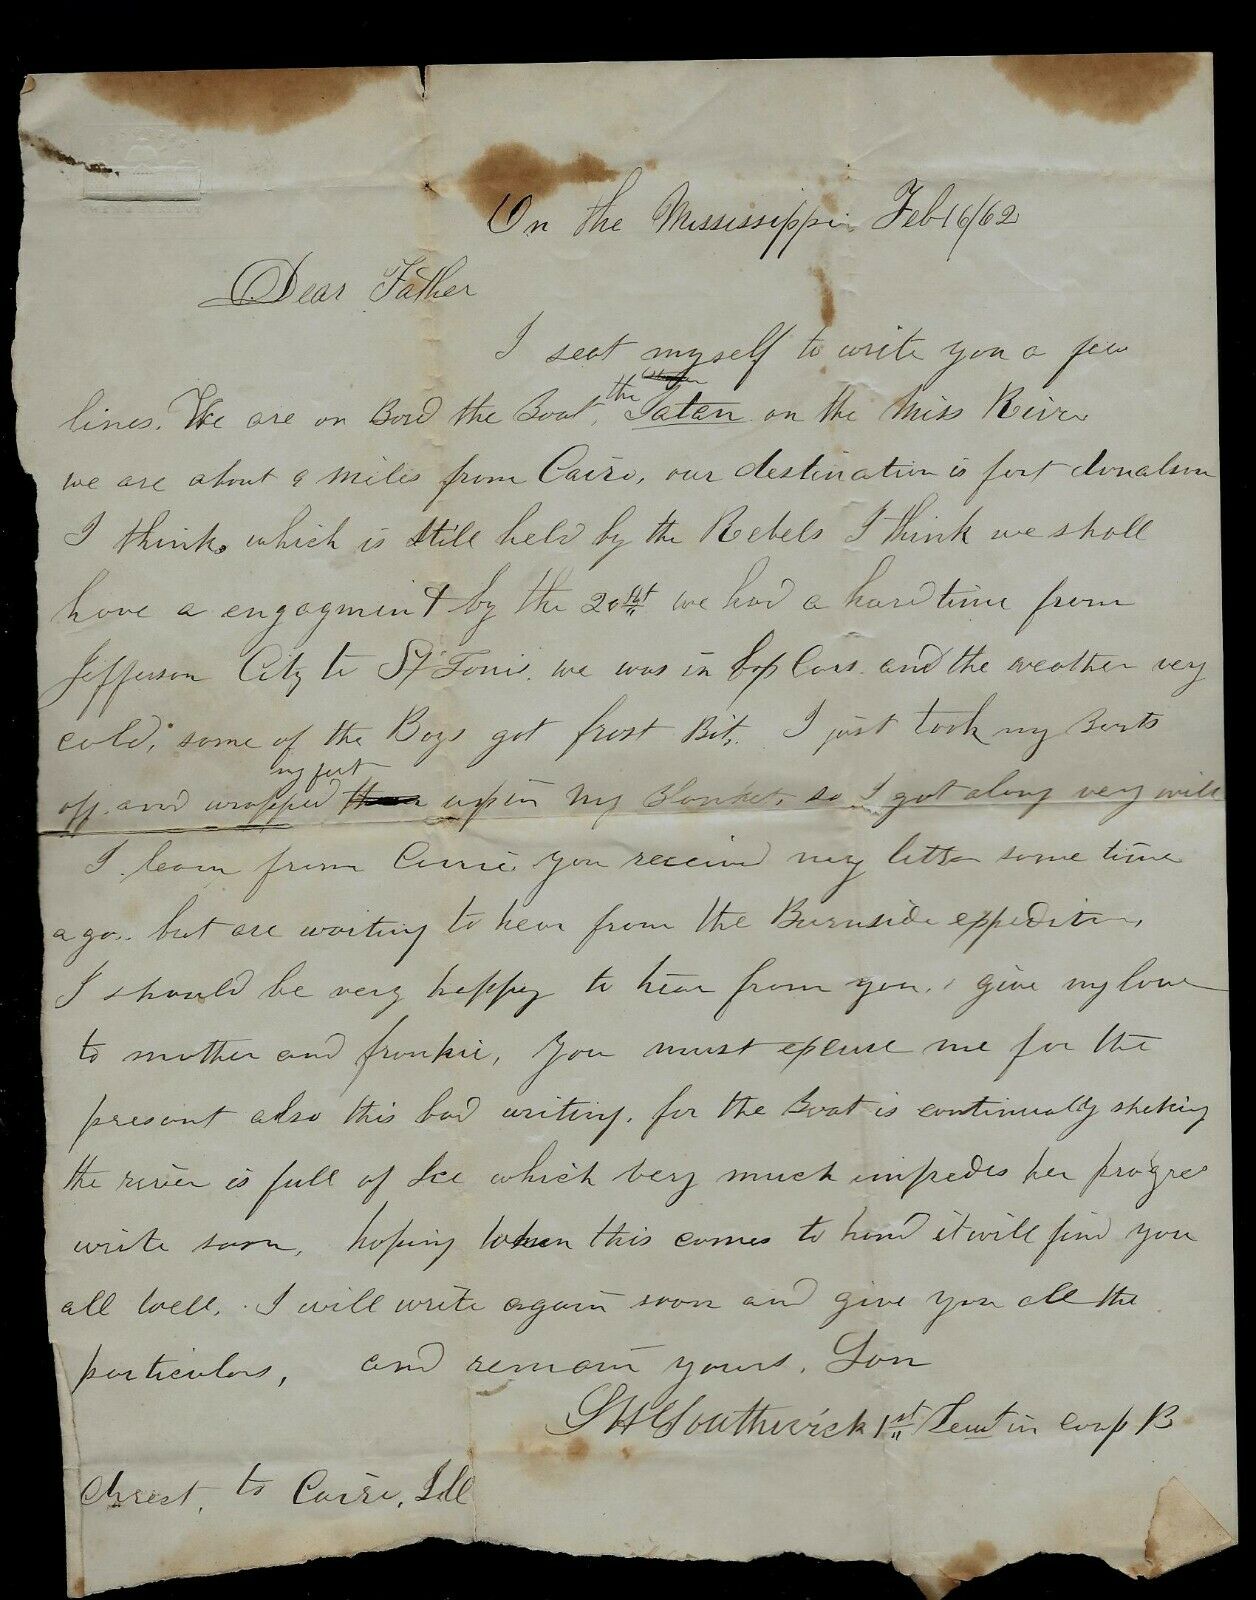 On the Mississippi Feb 16/62
Dear Father
I seat myself to write you a few
lines. We are on Bord the Boat, the Tatan on the Miss River
we are about 9 miles from Cairo, our destination is fort donalson
I think, which is still held by the Rebels I think we shall
have a engagment by the 20st we had a hard time from
Jefferson City to St Louis. we was in box Cars. and the weather very
cold, some of the Boys got frost Bit. I just took my Boots
off. and wrapped my feet up in my Blanket, so I got along very well
I learn from Carrie you received my letter some time
ago.. but are waiting to hear from the Burnside expedition,
I should be very happy to hear from you, give my love
to mother and frankie, You must excuse me for the
present also this bad writing, for the Boat is continually shaking
the river is full of Ice which very much impedes her progres
write soon, hoping when this comes to hand it will find you
all well. I will write again soon and give you all the
particulars, and remain yours, Son
S H Southwick 1st Leut in comp B
direct, to Cairo, Ill